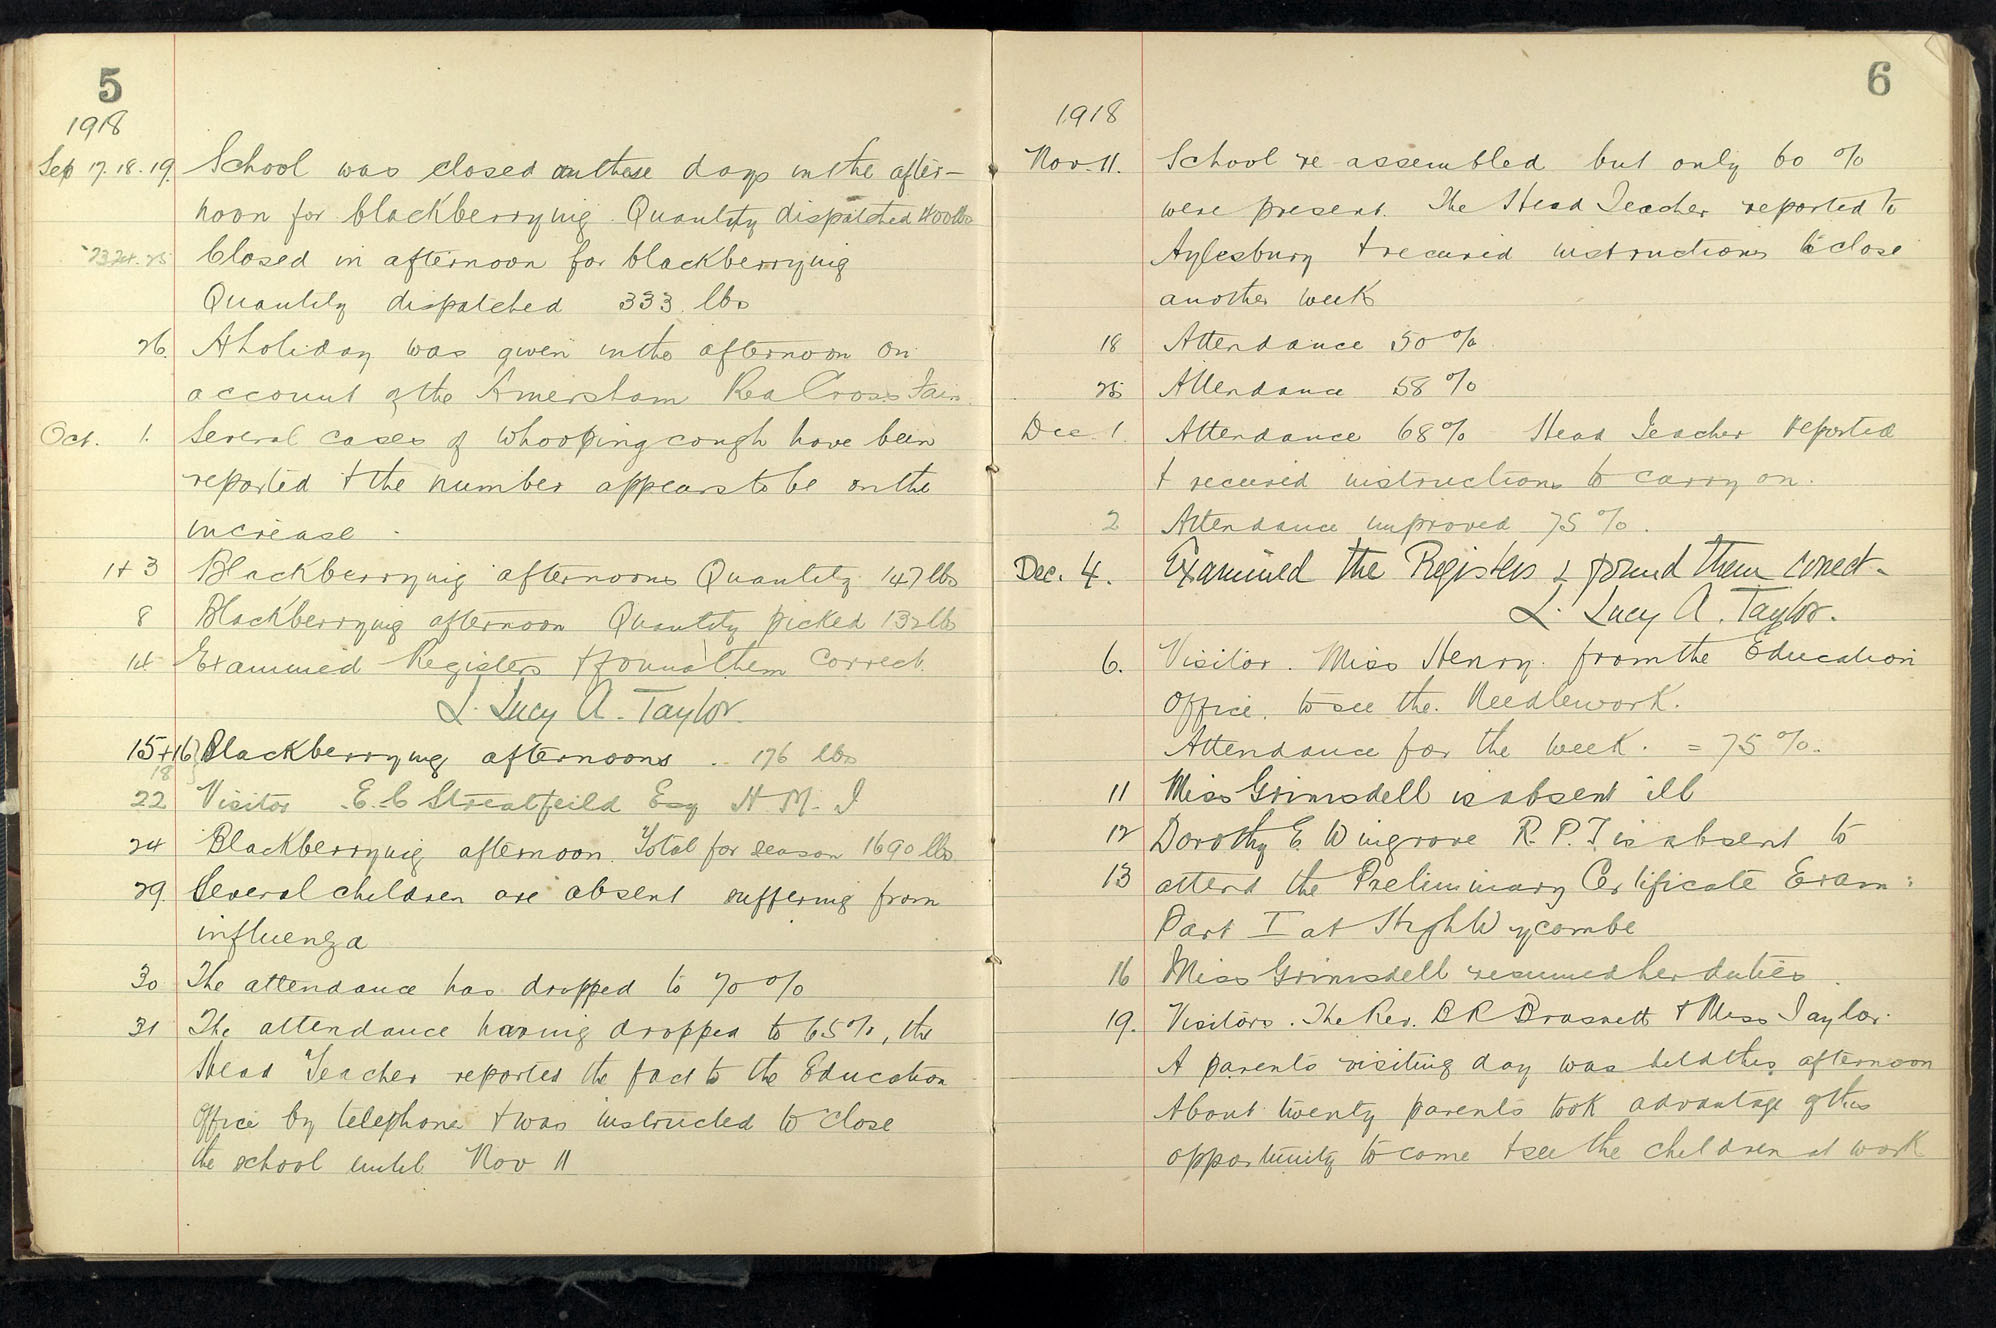 5
1918
Sep 17. 18. 19. School was closed on these days in the after-
noon for blackberrying. Quantity dispatched 400 lbs
23. 24. 25 Closed in afternoon for blackberrying
Quantity dispatched 333 lbs
26. A holiday was given in the afternoon on
account of the Amersham Red Cross Fair.
Oct. 1. Several cases of whooping cough have been
reported + the number appears to be on the
increase.
1 + 3 Blackberrying afternoons Quantity 147 lbs
8 Blackberrying afternoon Quantity picked 132 lbs
14 Examined Registers + found them correct.
L. Lucy A. Taylor.
15 + 16 Blackberrying afternoons . 176 lbs
18
22 Visitor E. C Streatfeild Esq H. M. I
24 Blackberrying afternoon. Total for season 1690 lbs
29. Several children are absent suffering from
influenza
30 The attendance has dropped to 70 %
31 The attendance having dropped to 65%, the
Head Teacher reported the fact to the Education
Office by telephone + was instructed to close
the school until Nov 11
6
1918
Nov. 11. School re assembled but only 60 %
were present. The Head Teacher reported to
Aylesbury + received instructions to close
another week
18 Attendance 50 %
25 Attendance 58 %
Dec. 1. Attendance 68 % Head Teacher reported
+ received instructions to carry on.
2 Attendance improved 75 %.
Dec. 4. Examined the Registers & found them correct.
L. Lucy A. Taylor.
6. Visitor. Miss Henry. from the Education
Office. to see the Needlework.
Attendance for the week. = 75 %.
11 Miss Grimsdell is absent ill
12 Dorothy E. Wingrove R. P. T. is absent to
13 attend the Preliminary Certificate Exam:
Part I at High Wycombe
16 Miss Grimsdell resumed her duties.
19. Visitors. The Rev. B R Brasnett + Miss Taylor.
A parents visiting day was held this afternoon
About twenty parents took advantage of this
opportunity to come + see the children at work